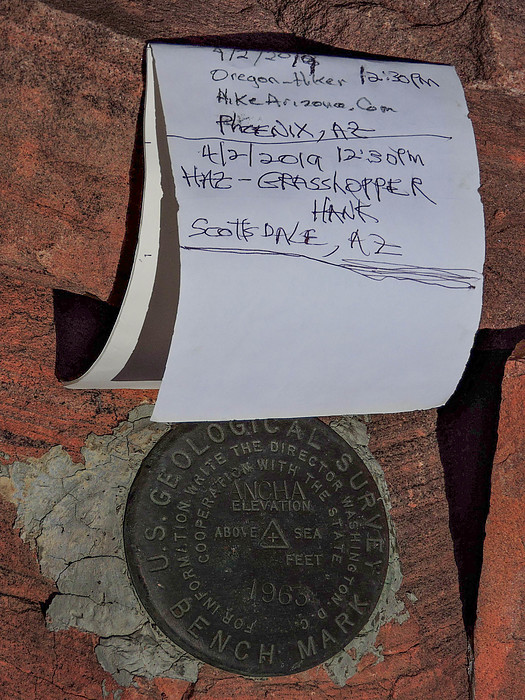 4/2/2019
Oregon-Hiker 12:30PM
HikeArizona.Com
PHOENIX, AZ
4/2/2019 12:30PM
HAZ - GRASSHOPPER
HANK
SCOTTSDALE, AZ
U.S. GEOLOGICAL SURVEY
FOR INFORMATION WRITE THE DIRECTOR WASHINGTON D.C.
COOPERATION WITH THE STATE
ANCHA
ELEVATION
ABOVE SEA
FEET
1963
BENCH MARK